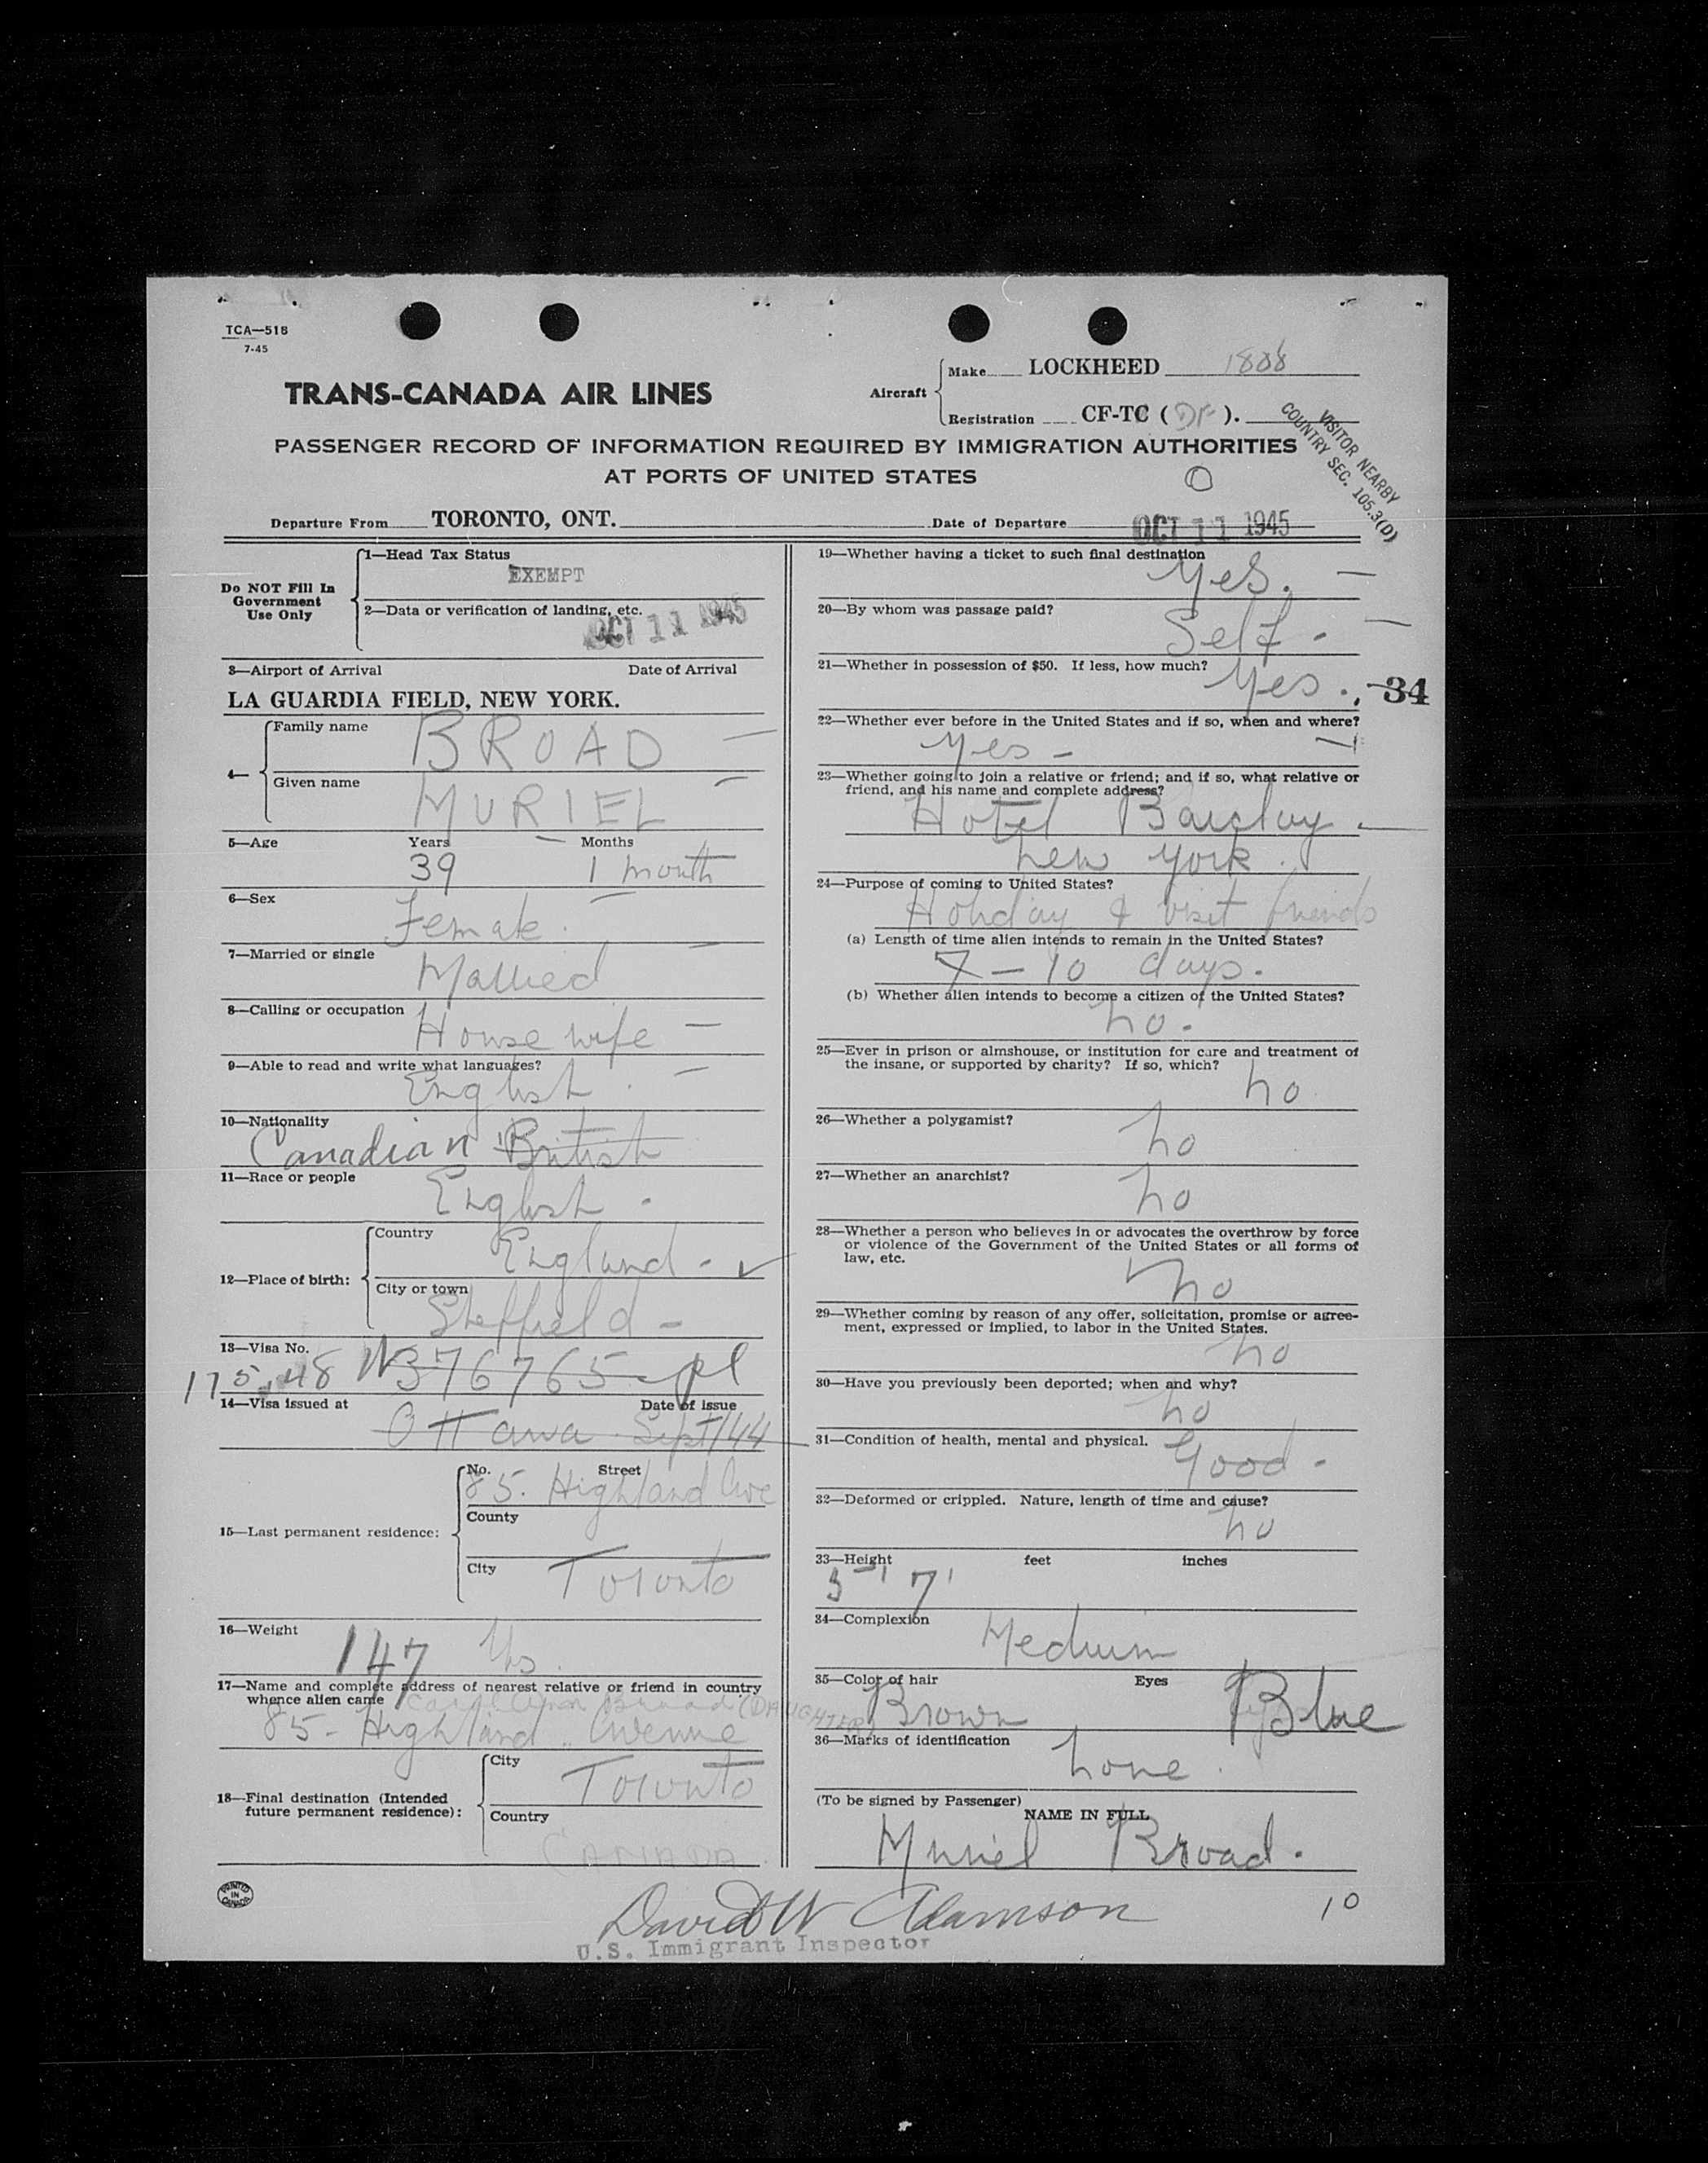 TCA—518
7-45
TRANS-CANADA AIR LINES
Aircraft
Make LOCKHEED
Registration CF-TC ( ).
VISITOR NEARBY
COUNTRY SEC. 105.3(D)
PASSENGER RECORD OF INFORMATION REQUIRED BY IMMIGRATION AUTHORITIES
AT PORTS OF UNITED STATES
Departure From TORONTO, ONT. Date of Departure OCT 11 1945
Do NOT Fill In
Government
Use Only
1—Head Tax Status
EXEMPT
2—Data or verification of landing, etc.
OCT 11 1945
3—Airport of Arrival Date of Arrival
LA GUARDIA FIELD, NEW YORK.
4—
Family name BROAD —
Given name MURIEL —
5—Age Years — Months
39 1 month
6—Sex Female.
7—Married or single Married
8—Calling or occupation Housewife —
9—Able to read and write what languages?
English. —
10—Nationality
Canadian British
11—Race or people
English -
12—Place of birth:
Country England -
City or town Sheffield -
13—Visa No.
376765 pl
14—Visa issued at Date of issue
Ottawa Sept/44
15—Last permanent residence:
No. Street
85. Highland Ave
County
City Toronto
16—Weight 147 lbs.
17—Name and complete address of nearest relative or friend in country
whence alien came Broad (DAUGHTER)
85 - Highland Avenue
18—Final destination (Intended
future permanent residence):
City Toronto
Country
CANADA.
19—Whether having a ticket to such final destination
Yes. —
20—By whom was passage paid?
Self - —
21—Whether in possession of $50. If less, how much?
Yes. -34
22—Whether ever before in the United States and if so, when and where?
Yes -
23—Whether going to join a relative or friend; and if so, what relative or
friend, and his name and complete address?
Hotel Barclay. —
New York.
24—Purpose of coming to United States?
Holiday & visit friends
(a) Length of time alien intends to remain in the United States?
7 — 10 days.
(b) Whether alien intends to become a citizen of the United States?
no.
25—Ever in prison or almshouse, or institution for care and treatment of
the insane, or supported by charity? If so, which?
no
26—Whether a polygamist?
no
27—Whether an anarchist?
no
28—Whether a person who believes in or advocates the overthrow by force
or violence of the Government of the United States or all forms of
law, etc.
no
29—Whether coming by reason of any offer, solicitation, promise or agree-
ment, expressed or implied, to labor in the United States.
no
30—Have you previously been deported; when and why?
no
31—Condition of health, mental and physical. Good -
32—Deformed or crippled. Nature, length of time and cause?
no
33—Height feet inches
5' 7'
34—Complexion Medium
35—Color of hair Eyes
Brown Blue
36—Marks of identification
none.
(To be signed by Passenger)
NAME IN FULL
Muriel Broad.
PRINTED
IN
CANADA
David W Adamson
U.S. Immigrant Inspector
10